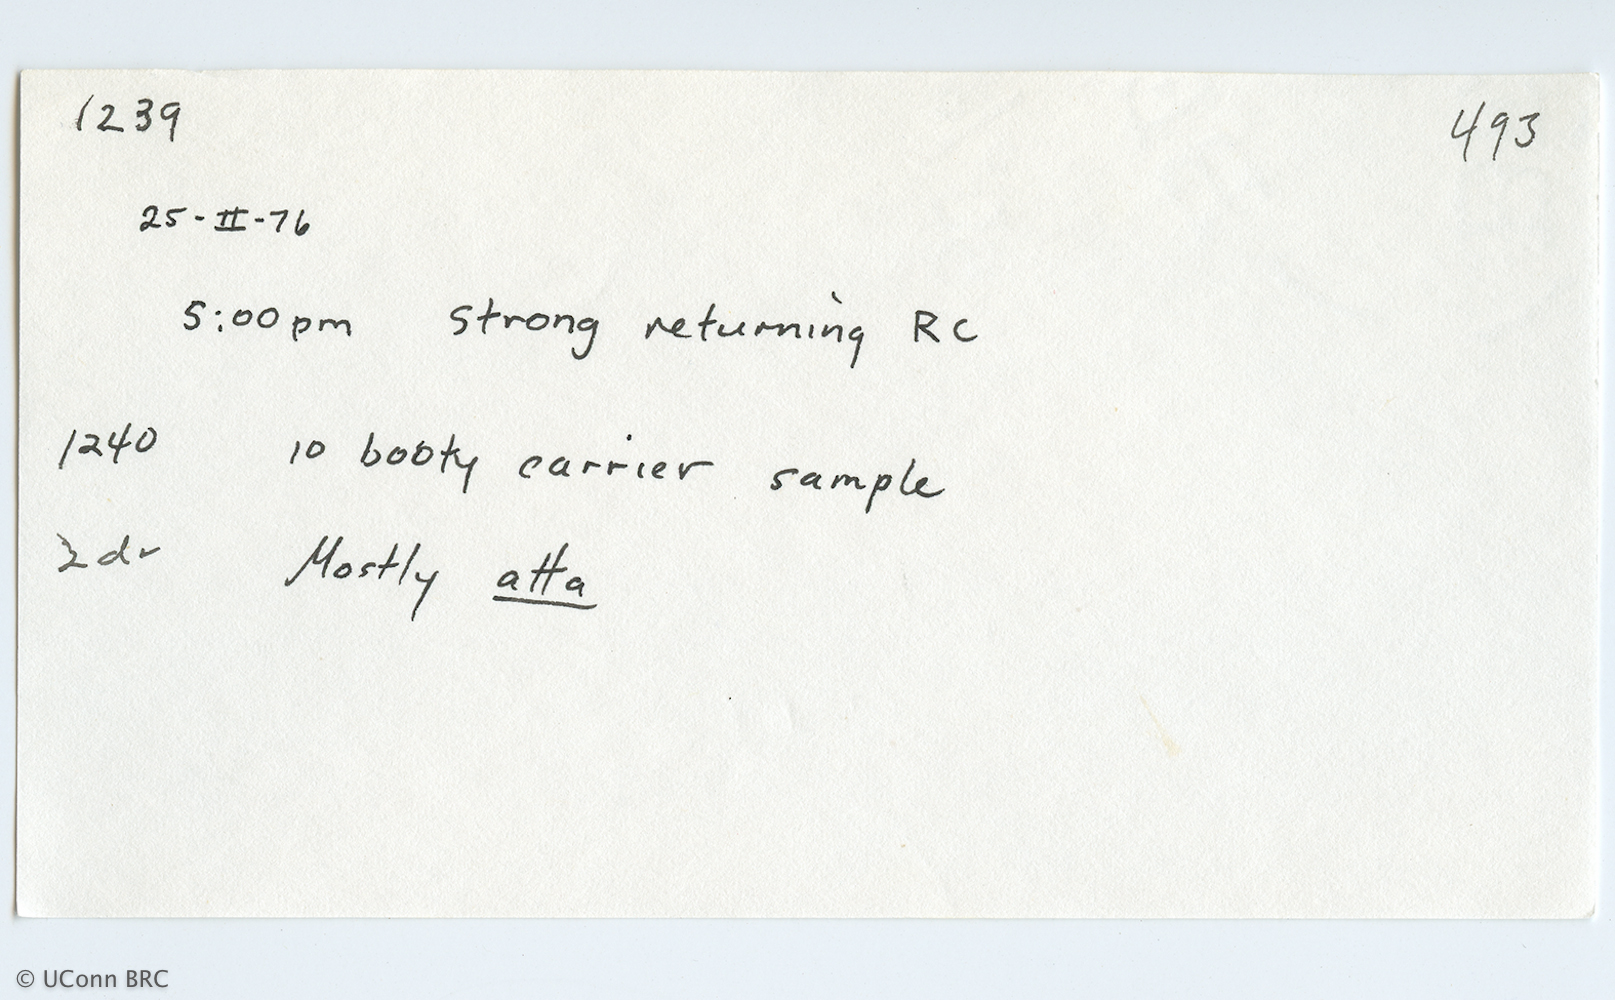 1239 493
25-II-76
5:00pm strong returning RC
1240 10 booty carrier sample
2dr Mostly atta
© UConn BRC